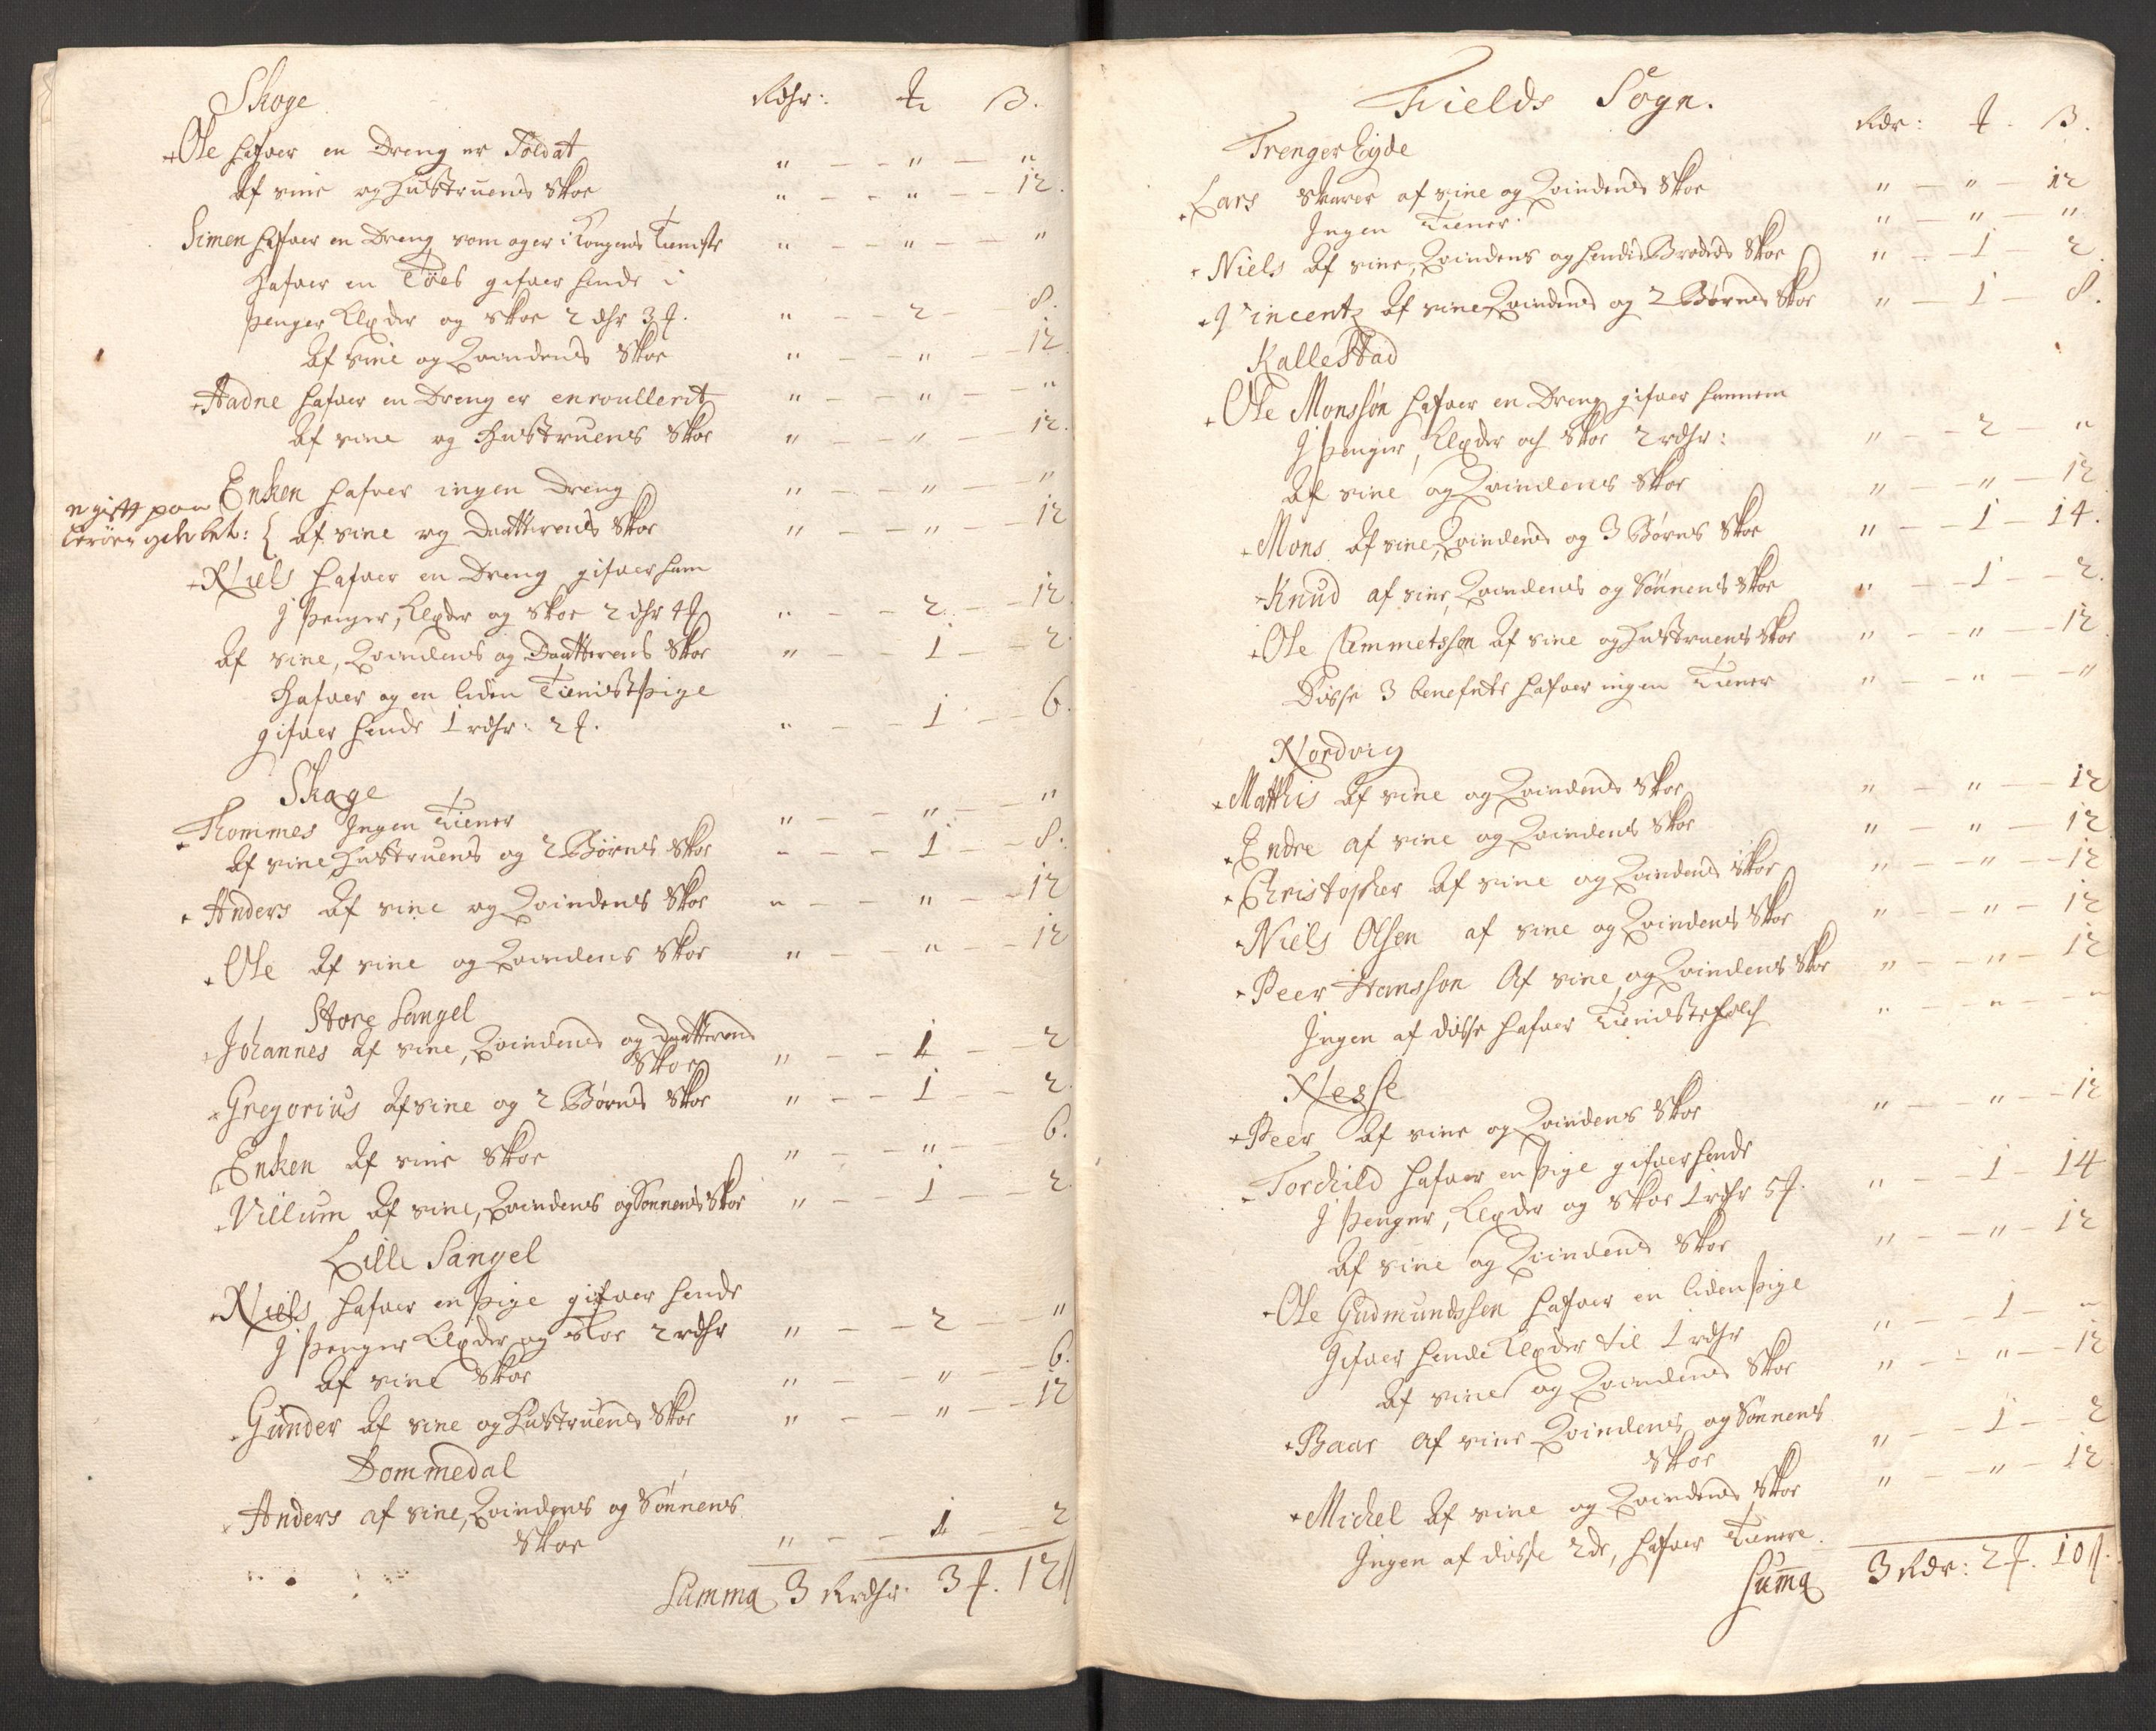 Skoge
Rdhr: ₰ ß.
+Ole hafver en Dreng er Soldat " — " — "
Af sine og Hustruens Skoe " — " — 12.
Simen hafver en Dreng som og er i Kongens Tieniste " — " — "
Hafver en Tøes gifver hende i
penger Klæder og Skoe 2 dhr 3 ₰. " — 2 — 8.
Af sine og Qvindens Skoe " — " — 12
+Aadne hafver en Dreng er enroullerit " — " — "
Af sine og Hustruens Skoe " — " — 12.
Enken hafver ingen Dreng " — " — "
{ Af sine og Daatterens Skoe " — " — 12
+Niels hafver en Dreng gifver ham
J penger, Klæder og Skoe 2 dhr 4 ₰ " — 2 — 12.
Af sine, Qvindens og Daatterens Skoe " — 1 — 2.
Hafver og en liden Tieniste pige
gifver hende 1 rdhr: 2 ₰. " — 1 — 6.
Skage
+Thommes Ingen Tiener " — " — "
Af sine Hustruens og 2 Børns Skoe " — 1 — 8.
+Anders Af sine og Qvindens Skoe " — " — 12
+Ole Af sine og Qvindens Skoe " — " — 12
Store Sangel
+Johannes Af sine, Qvindens og Daatterens
Skoe " — 1 — 2
+Gregorius Af sine og 2 Børns Skoe " — 1 — 2.
+Enken Af sine Skoe " — " — 6.
+Villum Af sine, Qvindens og Sønnens Skoe " — 1 — 2.
Lille Sangel
+Niels hafver en pige gifver hende
J penger Klæder og Skoe 2 rdhr " — 2 — "
Af sine Skoe " — " — 6.
+Gunder Af sine og Hustruens Skoe " — " — 12
Dommedal
+Anders af sine, Qvindens og Sønnens
Skoe " — 1 — 2
Summa 3 Rrdhr: 3 ₰. 12 ß
Fields Sogn.
Rdr: ₰. ß.
Trenger Eyde
+Lars Svarer af sine og Qvindens Skoe " — " — 12
Ingen Tiener. " — " — "
+Niels Af sine, Qvindens og hendis Broders Skoe " — 1 — 2.
+Vincentz Af sine Qvindens og 2 Børns Skoe " — 1 — 8.
Kallestad
+Ole Monssøn hafver en Dreng gifver hannem
J penger, Klæder och Skoe 2 rdhr: " — 2 — "
Af sine og Qvindens Skoe " — " — 12
+Mons Af sine, Qvindens og 3 Børns Skoe " — 1 — 14.
+Knud af sine, Qvindens og Sønnens Skoe " — 1 — 2.
+Ole Clemmetssen Af sine og Hustruens Skoe " — " — 12
Disse 3 benefnte hafver ingen Tiener " — " — "
Nordvig
+Matthis Af sine og Qvindens Skoe " — " — 12
+Endre af sine og Qvindens Skoe " — " — 12
+Christopher Af sine og Qvindens Skoe " — " — 12
+Niels Olsen af sine og Qvindens Skoe " — " — 12
+Peer Hansson Af sine og Qvindens Skoe " — " — 12
Ingen af disse hafver Tienistefolch " — " — "
Nesse
+Peer Af sine og Qvindens Skoe " — " — 12
+Torchild hafver en pige gifver hende
J penger, Klæder og Skoe 1 rdhr 5 ₰. " — 1 — 14
Af sine og Qvindens Skoe " — " — 12
+Ole Gudmundssen hafver en liden pige
Gifver hende Klæder til 1 rdhr " — 1 — "
Af sine og Qvindens Skoe " — " — 12
+Baar af sine Qvindens og Sønnens
Skoe " — 1 — 2
+Michel Af sine og Qvindens Skoe " — " — 12
Ingen af disse 2de, hafver Tienere.
Summa 3 Rdr: 2 ₰. 10 ß.